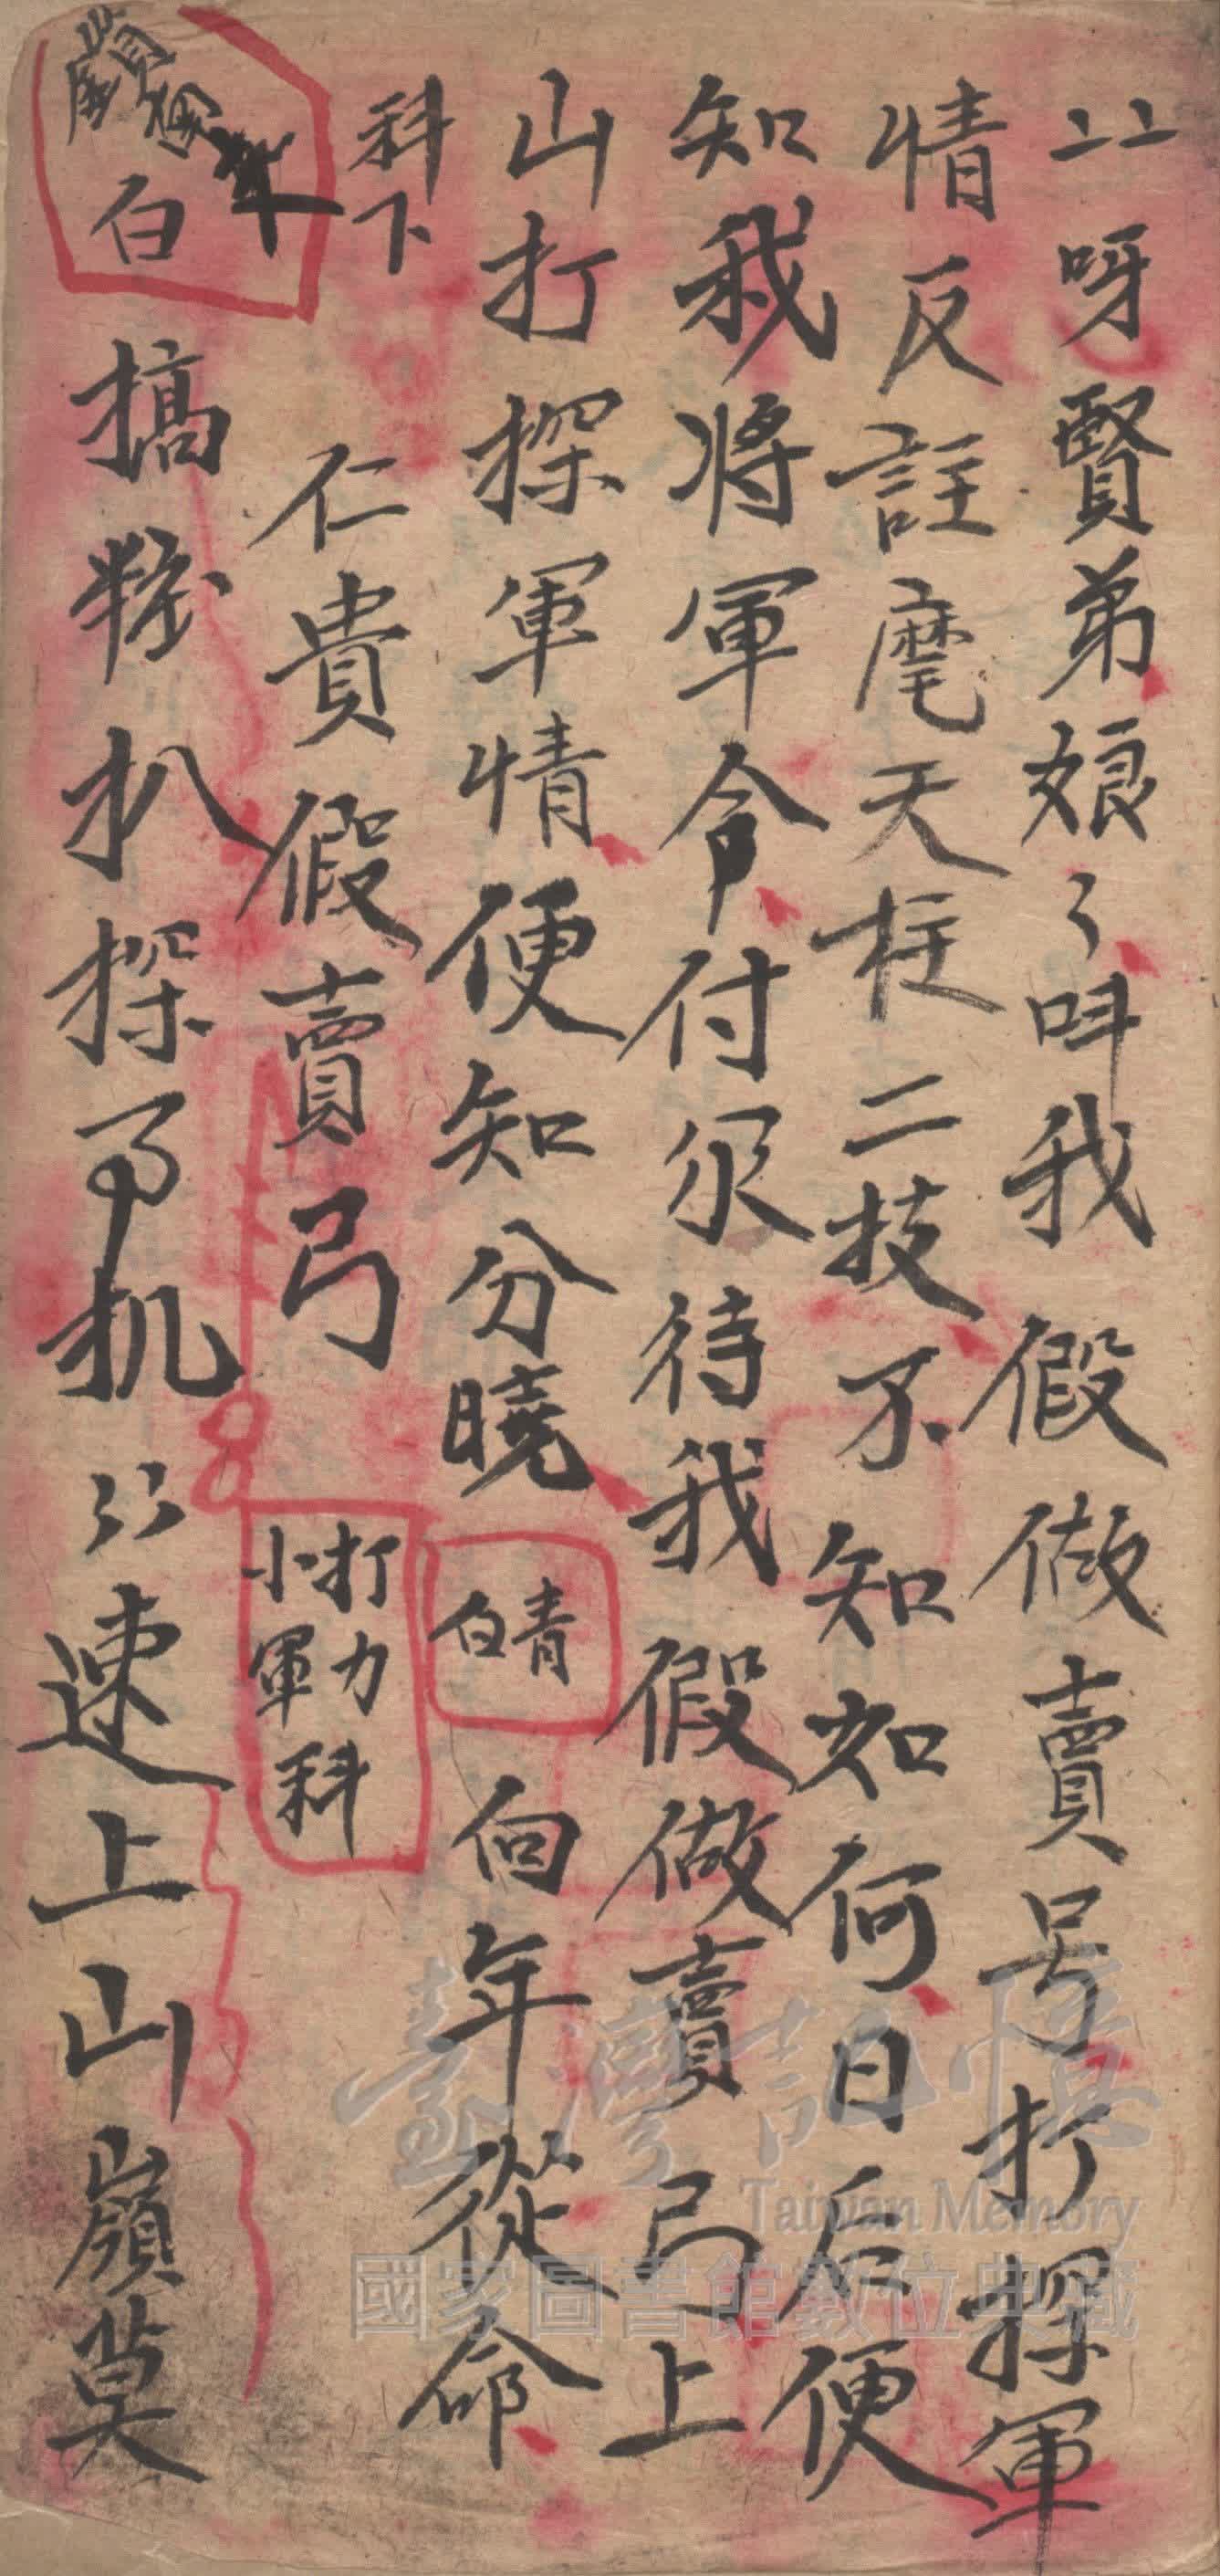 〻〻呀賢弟娘〻叫我假做賣号打探軍
情反註麾天柱二技不知如何日后便
知我將軍令付你待我假做賣弓上
山打探軍情便知分曉
青白
向年從命
科下
仁貴假賣弓
打力小軍科
白
搞粮扒探子机〻〻速上山嶺莫
臺灣記憶
Taiwan Memory
國家圖書館數位典藏